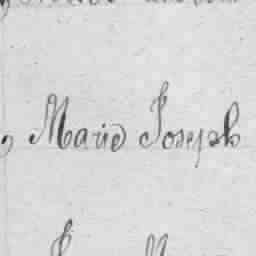 , Marie Joseph